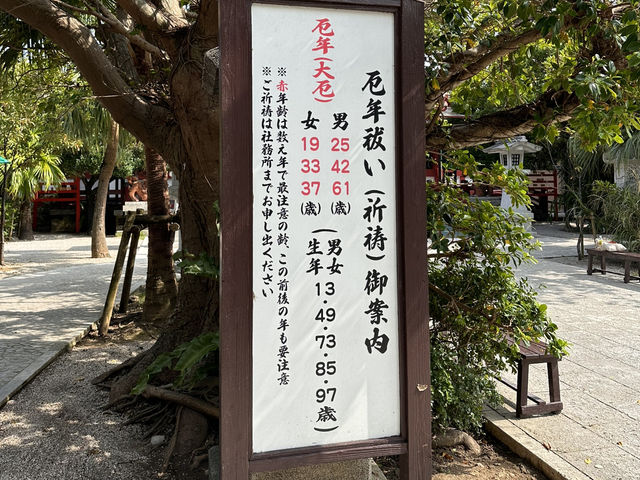 厄年祓い(祈祷)御案内
厄年(大厄)
男 25 42 61 (歳)
女 19 33 37 (歳)
(男女生年 13・49・73・85・97歳)
※赤年齢は数え年で最注意の齢、この前後の年も要注意
※ご祈祷は社務所までお申し出ください